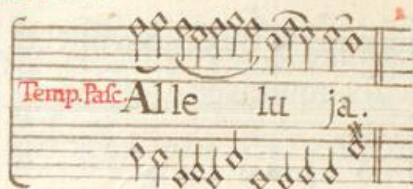 Temp. Pasc. Alle lu ja.